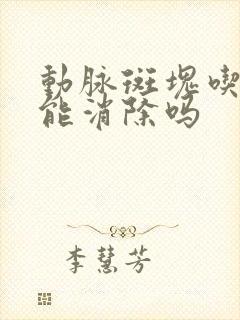 動脉斑塊喫
能消除吗
李慧芳